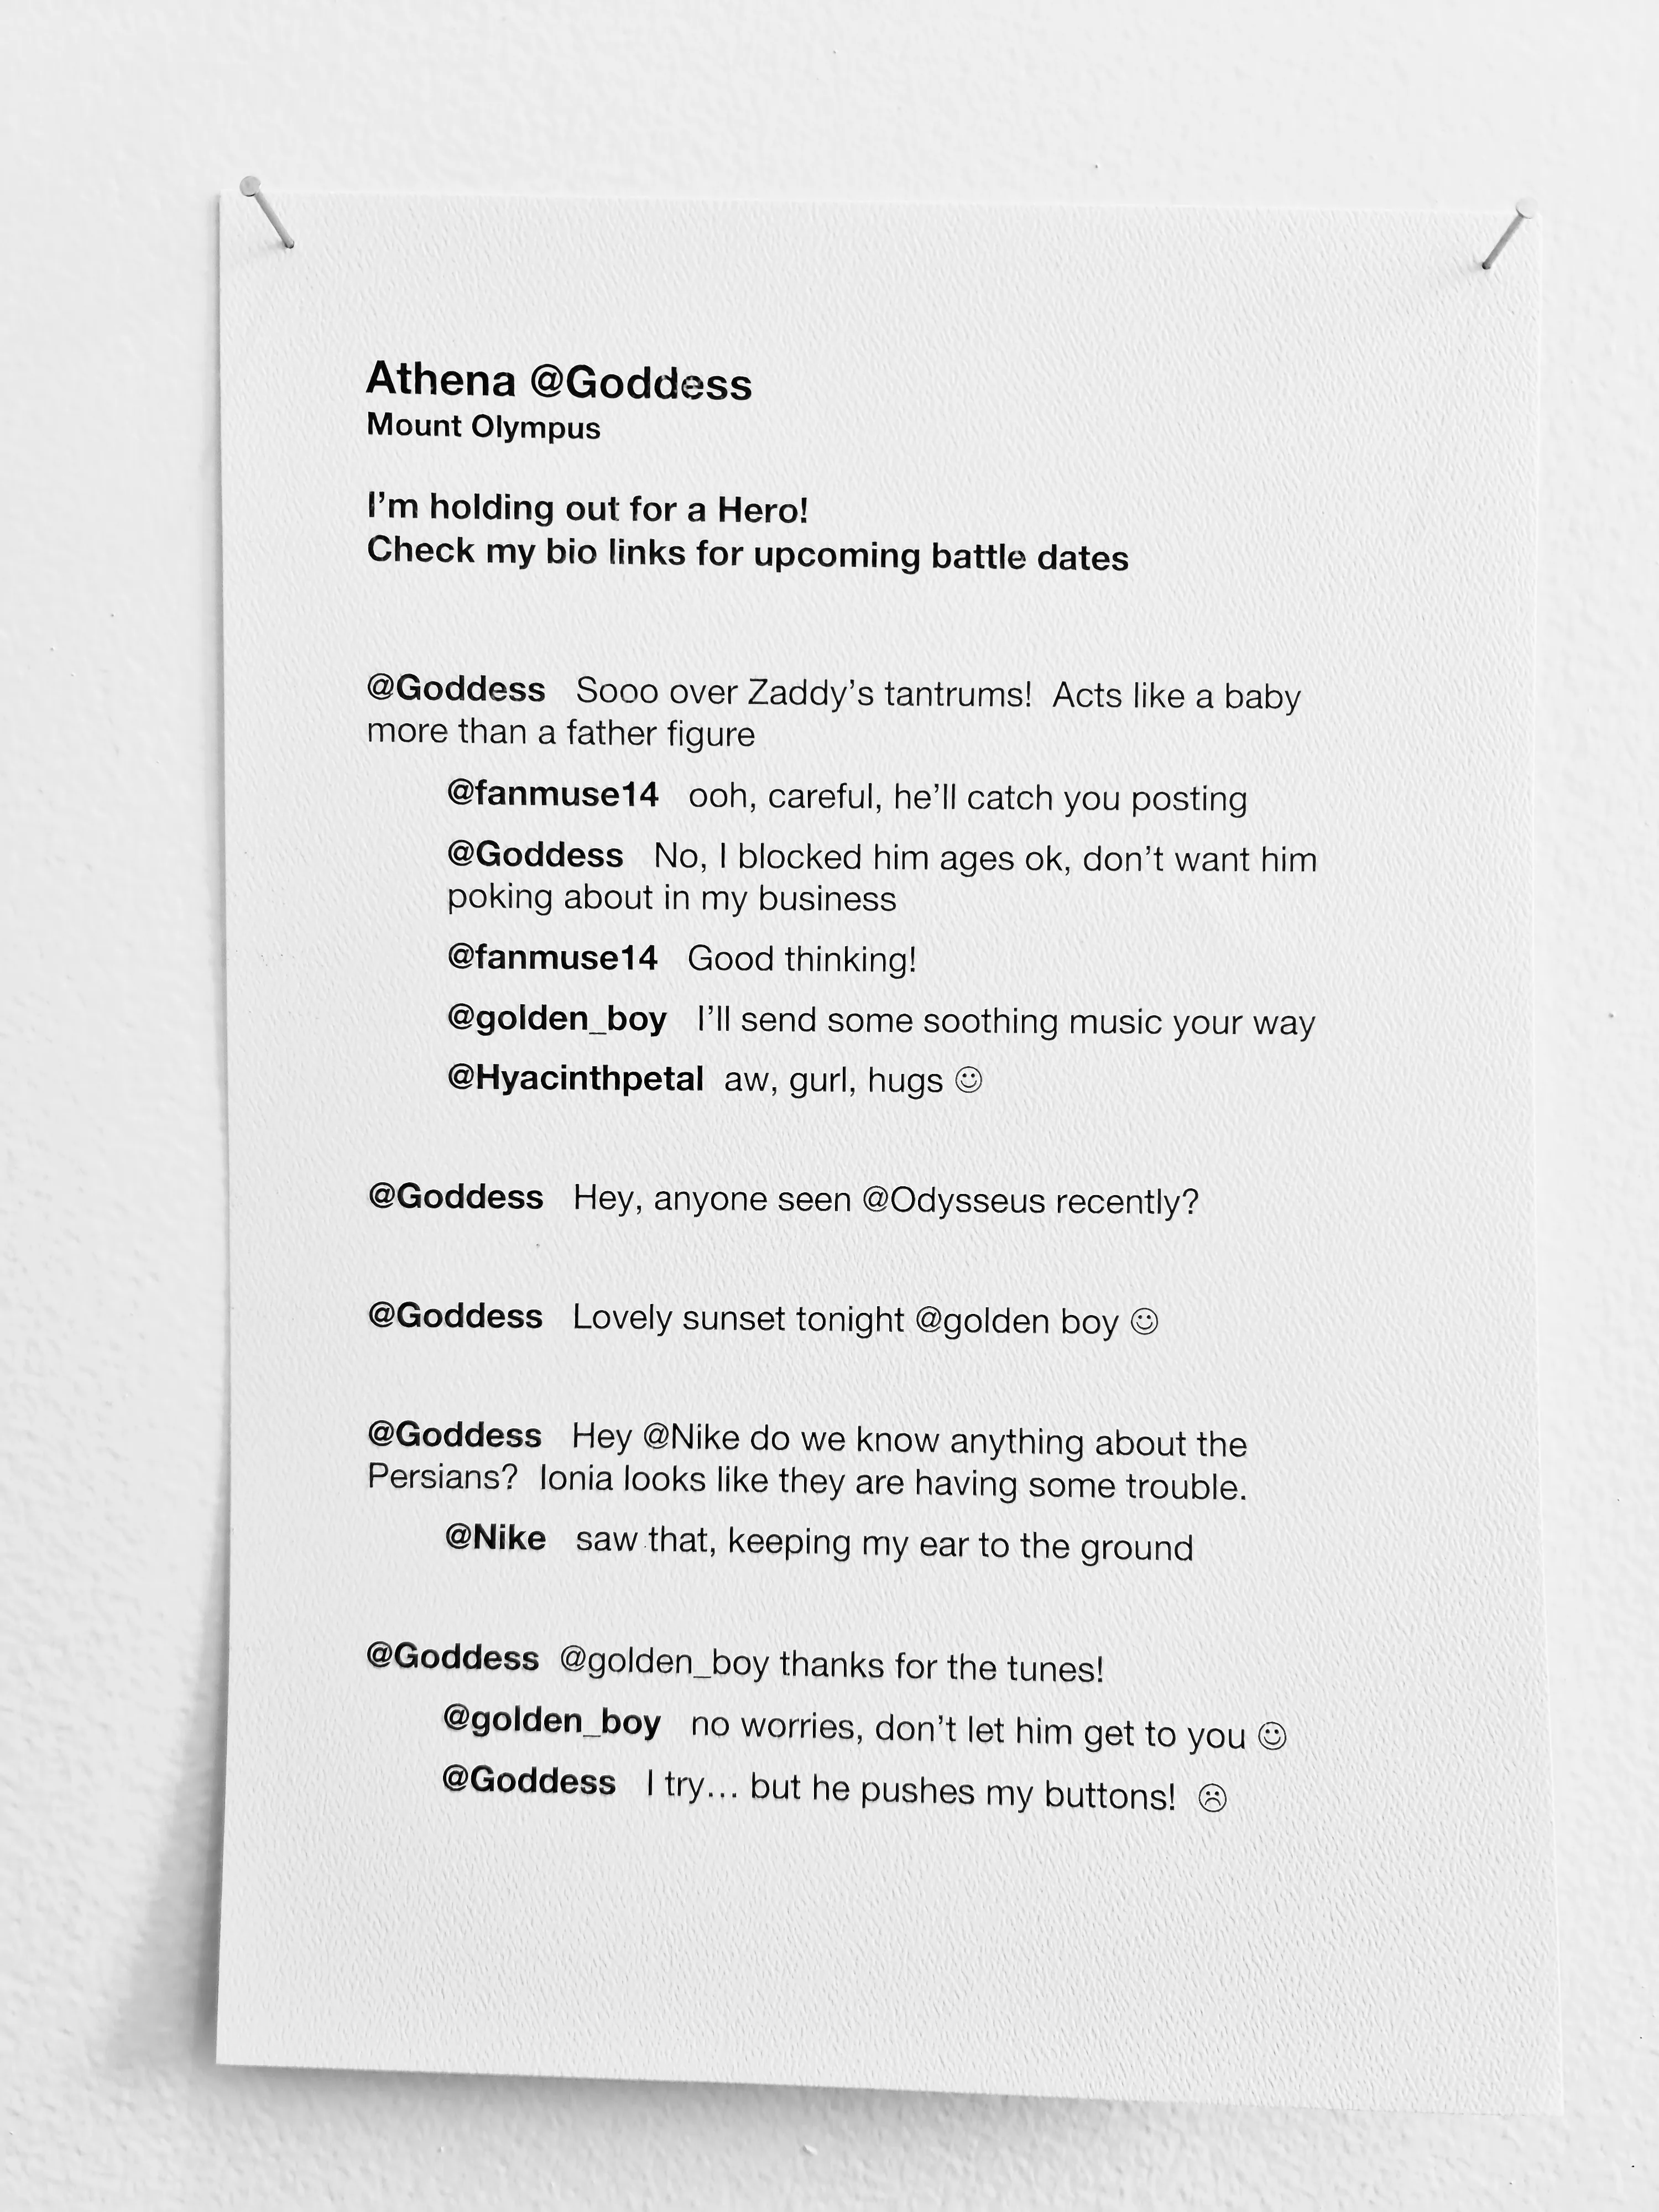 Athena @Goddess
Mount Olympus
I'm holding out for a Hero!
Check my bio links for upcoming battle dates
@Goddess Sooo over Zaddy's tantrums! Acts like a baby
more than a father figure
@fanmuse14 ooh, careful, he'll catch you posting
@Goddess No, I blocked him ages ok, don't want him
poking about in my business
@fanmuse14 Good thinking!
@golden_boy I'll send some soothing music your way
@Hyacinthpetal aw, gurl, hugs ☺
@Goddess Hey, anyone seen @Odysseus recently?
@Goddess Lovely sunset tonight @golden boy ☺
@Goddess Hey @Nike do we know anything about the
Persians? Ionia looks like they are having some trouble.
@Nike saw that, keeping my ear to the ground
@Goddess @golden_boy thanks for the tunes!
@golden_boy no worries, don't let him get to you ☺
@Goddess I try... but he pushes my buttons! ☹